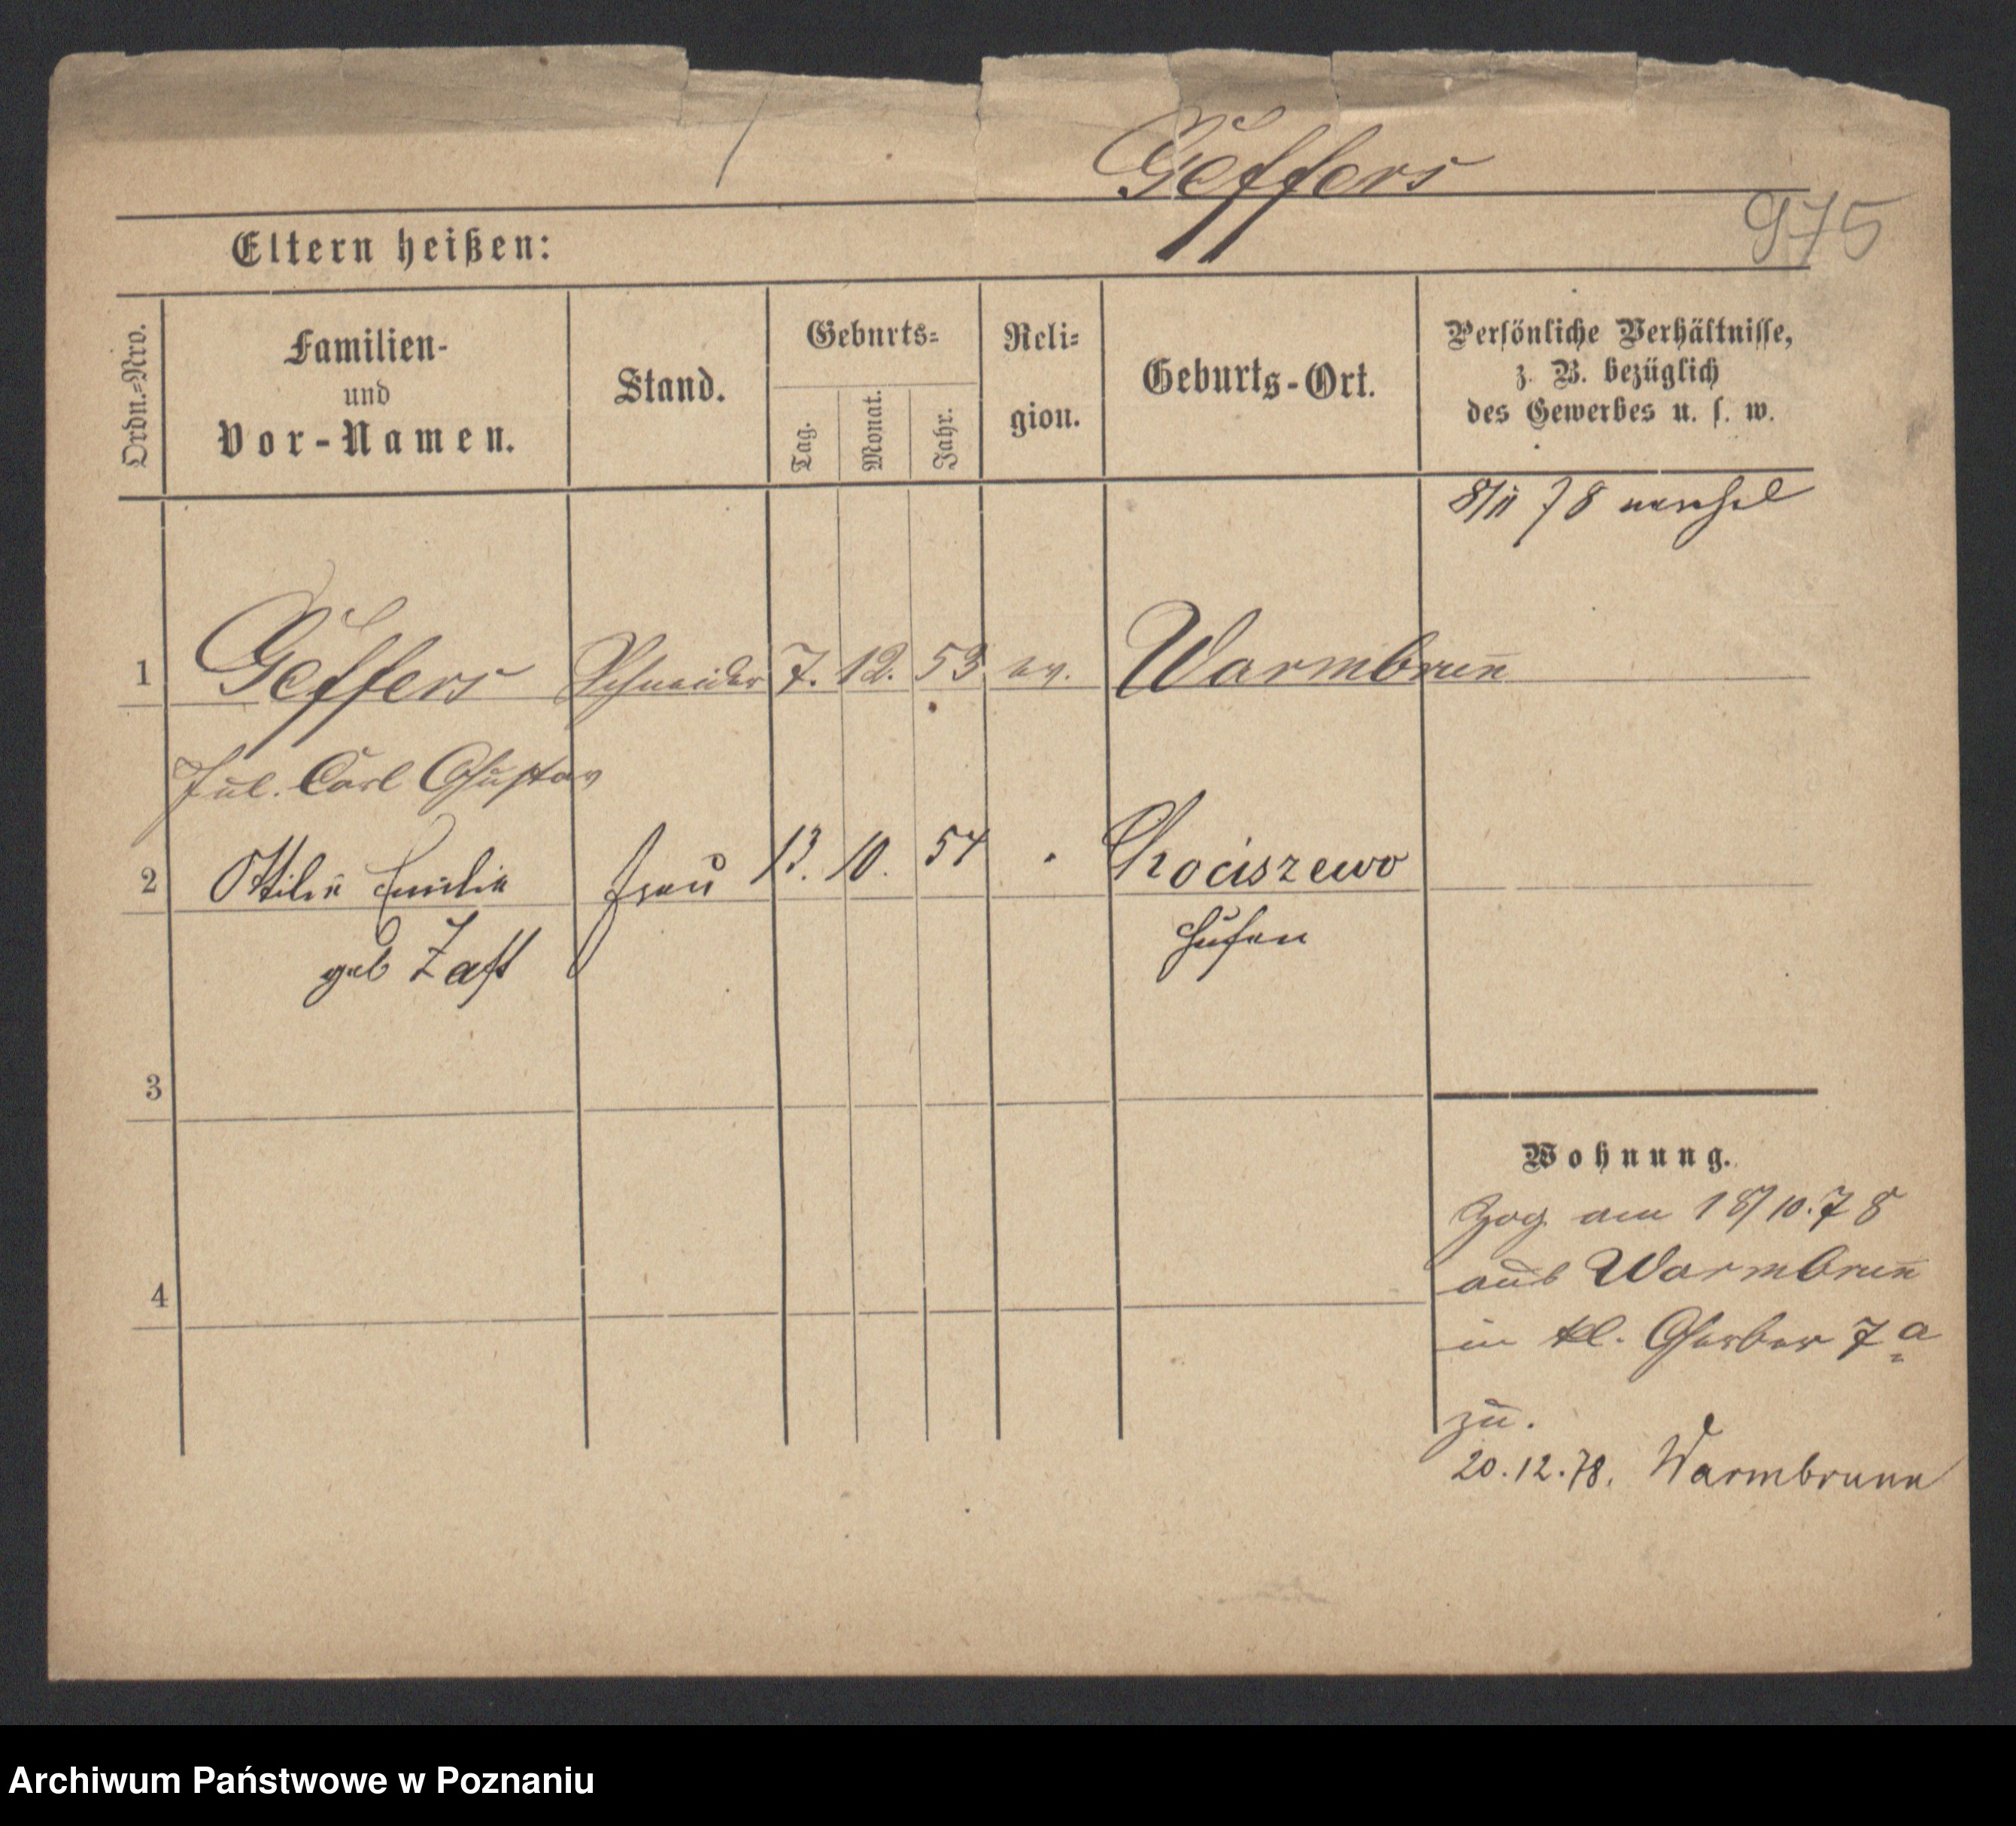 Geffers
975
Eltern heißen:
Ordn.-Nro.
Familien-
und
Vor-Namen.
Stand.
Geburts-
Tag.
Monat.
Jahr.
Reli-
gion.
Geburts-Ort.
Persönliche Verhältnisse,
z. B. bezüglich
des Gewerbes u. s. w.
8/11 78
1 Geffers Schneider 7. 12. 53 ev. Warmbrun̄
Jul. Carl Gustav
2 Ottilie Emilie Frau 13. 10. 54 Chociszewo
geb Zaft Hufen
3
Wohnung.
Zog am 18/10.78
aus Warmbrun̄
4
in kl. Gerber 7a
zu.
20.12.78. Warmbrunn
Archiwum Państwowe w Poznaniu